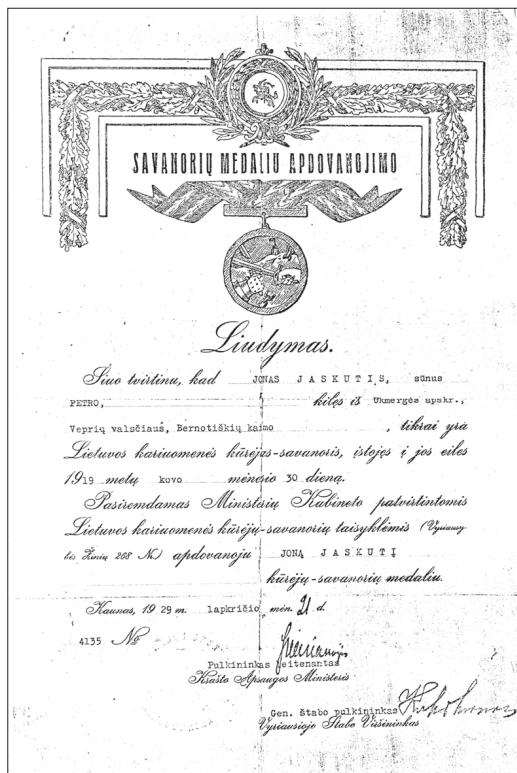 SAVANORIŲ MEDALIU APDOVANOJIMO
Liudymas.
Šiuo tvirtinu, kad JONAS JASKUTIS, sūnus
PETRO, kilęs iš Ukmergės apskr.,
Veprių valsčiaus, Bernotiškių kaimo , tikrai yra
Lietuvos kariuomenės kūrėjas-savanoris, įstojęs į jos eiles
1919 metų kovo mėnesio 30 dieną.
Pasiremdamas Ministerių Kabineto patvirtintomis
Lietuvos kariuomenės kūrėjų-savanorių taisyklėmis (Vyriausy-
bės Žinių 268 №) apdovanoju JONĄ JASKUTĮ
kūrėjų-savanorių medaliu.
Kaunas, 1929 m. lapkričio mėn. 21 d.
4135 №
Pulkininkas leitenantas
Krašto Apsaugos Ministeris
Gen. štabo pulkininkas
Vyriausiojo Štabo Viršininkas